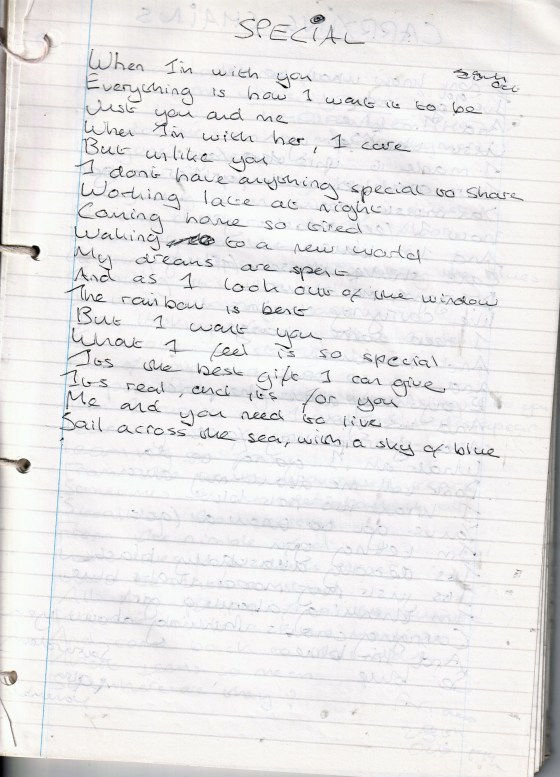 SPECIAL
When I'm with you
Oct
Everything is how I want it to be
Just you and me
When I'm with her, I care
But unlike you
I dont have anything special to share
Working late at night
Coming home so tired
Waking to a new world
My dreams are spent
And as I look out of the window
The rainbow is bent
But I want you
What I feel is so special
Its the best gift I can give
Its real, and its for you
Me and you need to live
Sail across the sea, with a sky of blue